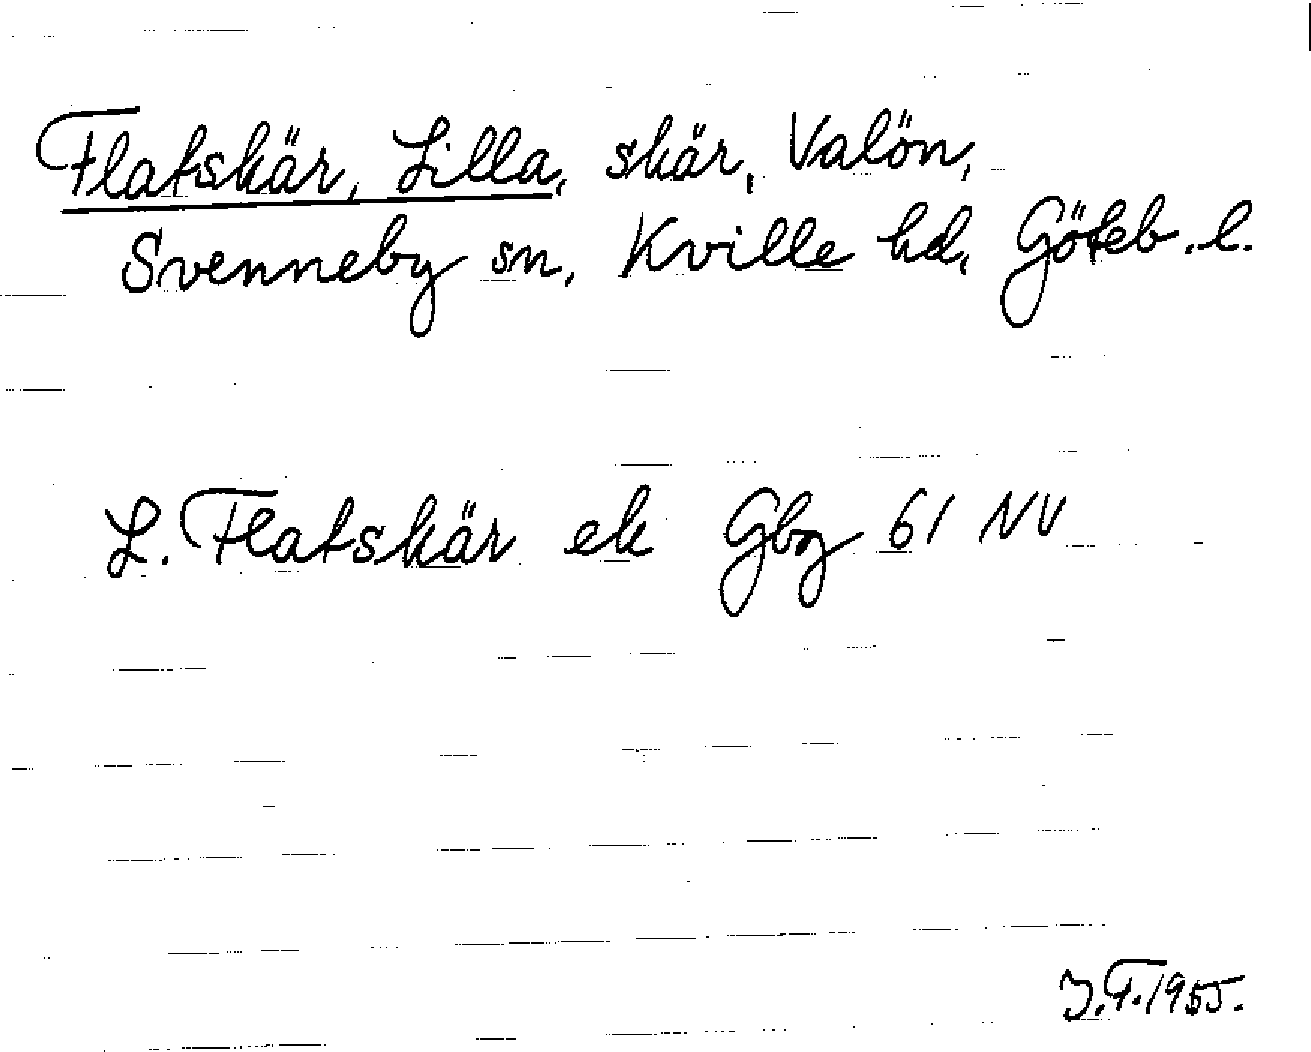 Flatskär, Lilla, skär, Valön,
Svenneby sn, Kville hd, Göteb. l.
L. Flatskär ek Gbg 61 NV
J.F. 1955.